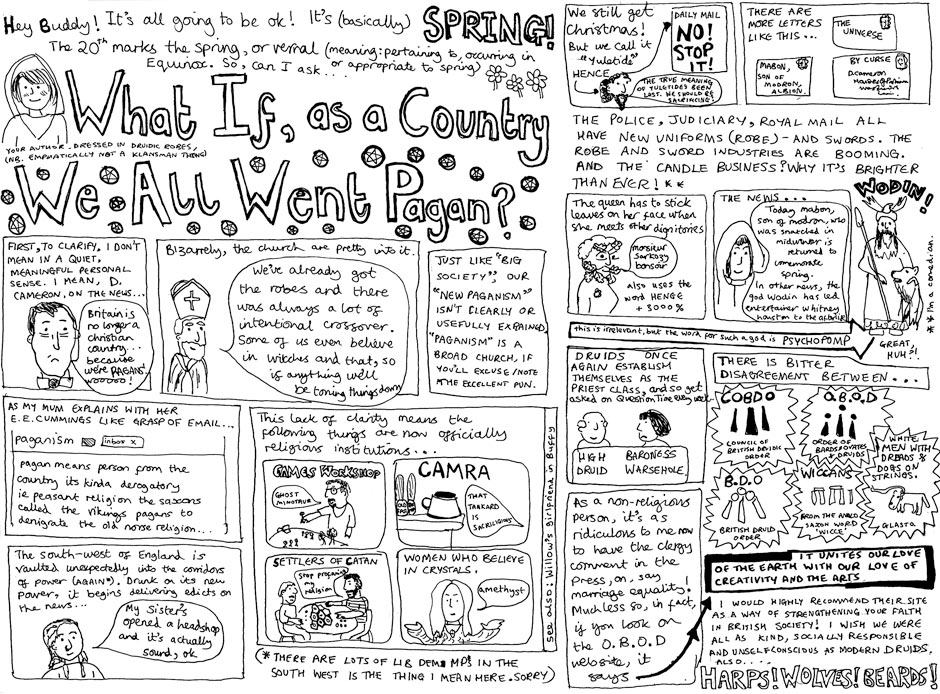 Hey Buddy! It's all going to be ok! It's (basically) SPRING!
The 20th marks the Spring, or vernal (meaning: pertaining to, occurring in
or appropriate to spring)
Equinox. So, can I ask...
What If, as a Country
We All Went Pagan?
YOUR AUTHOR. DRESSED IN DRUIDIC ROBES,
(NB. EMPHATICALLY NOT A KLANSMAN THING)
FIRST, TO CLARIFY, I DON'T
MEAN IN A QUIET,
MEANINGFUL PERSONAL
SENSE. I MEAN, D.
CAMERON, ON THE NEWS...
Britain is
no longer a
christian
country...
because
we're PAGANS!
WOOOOO!
Bizarrely, the church are pretty into it.
We've already got
the robes and there
was always a lot of
intentional crossover.
Some of us even believe
in witches and that, so
if anything we'll
be toning things down
JUST LIKE "BIG
SOCIETY", OUR
"NEW PAGANISM"
ISN'T CLEARLY OR
USEFULLY EXPLAINED.
"PAGANISM" IS A
BROAD CHURCH, IF
YOU'LL EXCUSE/NOTE
THE EXCELLENT PUN.
AS MY MUM EXPLAINS WITH HER
E.E. CUMMINGS LIKE GRASP OF EMAIL...
paganism inbox x
pagan means person from the
country its kinda derogatory
ie peasant religion the saxons
called the vikings pagans to
denigrate the old norse religion...
The south-west of England is
vaulted unexpectedly into the corridors
of power (AGAIN*). Drunk on its new
power, it begins delivering edicts on
the news...
My Sister's
opened a headshop
and it's actually
sound, ok
This lack of clarity means the
following things are now officially
religious institutions...
GAMES WORKSHOP
GHOST
MINOTAUR
CAMRA
THAT
TANKARD
IS
SACRILIGIOUS
SETTLERS OF CATAN
Stop profaning
my
religion
WOMEN WHO BELIEVE
IN CRYSTALS.
amethyst
see also: Willow's girlfriend in Buffy
(* THERE ARE LOTS OF LIB DEM MPS IN THE
SOUTH WEST IS THE THING I MEAN HERE. SORRY)
We still get
Christmas!
But we call it
"Yuletide"
HENCE
DAILY MAIL
NO!
STOP
IT!
THE TRUE MEANING
OF YULETIDE'S BEEN
LOST. WE SHOULD BE
SACRIFICING!
THERE ARE
MORE LETTERS
LIKE THIS...
THE
UNIVERSE
MABON,
SON OF
MODRON,
ALBION.
BY CURSE
D. Cameron
THE POLICE, JUDICIARY, ROYAL MAIL ALL
HAVE NEW UNIFORMS (ROBE) - AND SWORDS. THE
ROBE AND SWORD INDUSTRIES ARE BOOMING.
AND THE CANDLE BUSINESS? WHY IT'S BRIGHTER
THAN EVER! **
The queen has to stick
leaves on her face when
she meets other dignitories
monsieur
Sarkozy
bonsoir
also uses the
word HENGE
+ 3000%
THE NEWS...
Today mabon,
son of modron, who
was snatched in
midwinter is
returned to
comemorate
spring.
In other news, the
god Wodin has led
entertainer whitney
houston to the afterlife
WODIN!
** I'm a comedian.
this is irrelevant, but the word for such a god is PSYCHOPOMP
GREAT,
HUH?!
DRUIDS ONCE
AGAIN ESTABLISH
THEMSELVES AS THE
PRIEST CLASS, and so get
asked on Question Time every week
HIGH
DRUID
BARONESS
WARSEHOLE
THERE IS BITTER
DISAGREEMENT BETWEEN...
COBDO
COUNCIL OF
BRITISH DRUIDIC
ORDER
O.B.O.D
ORDER OF
BARDS, OVATES
+ DRUIDS
B.D.O
BRITISH DRUID
ORDER
WICCANS
FROM THE ANGLO
SAXON WORD
'WICCE'
WHITE
MEN WITH
DREADS &
DOGS ON
STRINGS.
GLASTO
As a non-religious
person, it's as
ridiculous to me now
to have the clergy
comment in the
Press, on, say
marriage equality!
Much less so, in fact,
if you look on
the O.B.O.D
website, it
says
IT UNITES OUR LOVE
OF THE EARTH WITH OUR LOVE OF
CREATIVITY AND THE ARTS
I WOULD HIGHLY RECOMMEND THEIR SITE
AS A WAY OF STRENGTHENING YOUR FAITH
IN BRITISH SOCIETY! I WISH WE WERE
ALL AS KIND, SOCIALLY RESPONSIBLE
AND UNSELFCONSCIOUS AS MODERN DRUIDS.
ALSO....
HARPS! WOLVES! BEARDS!